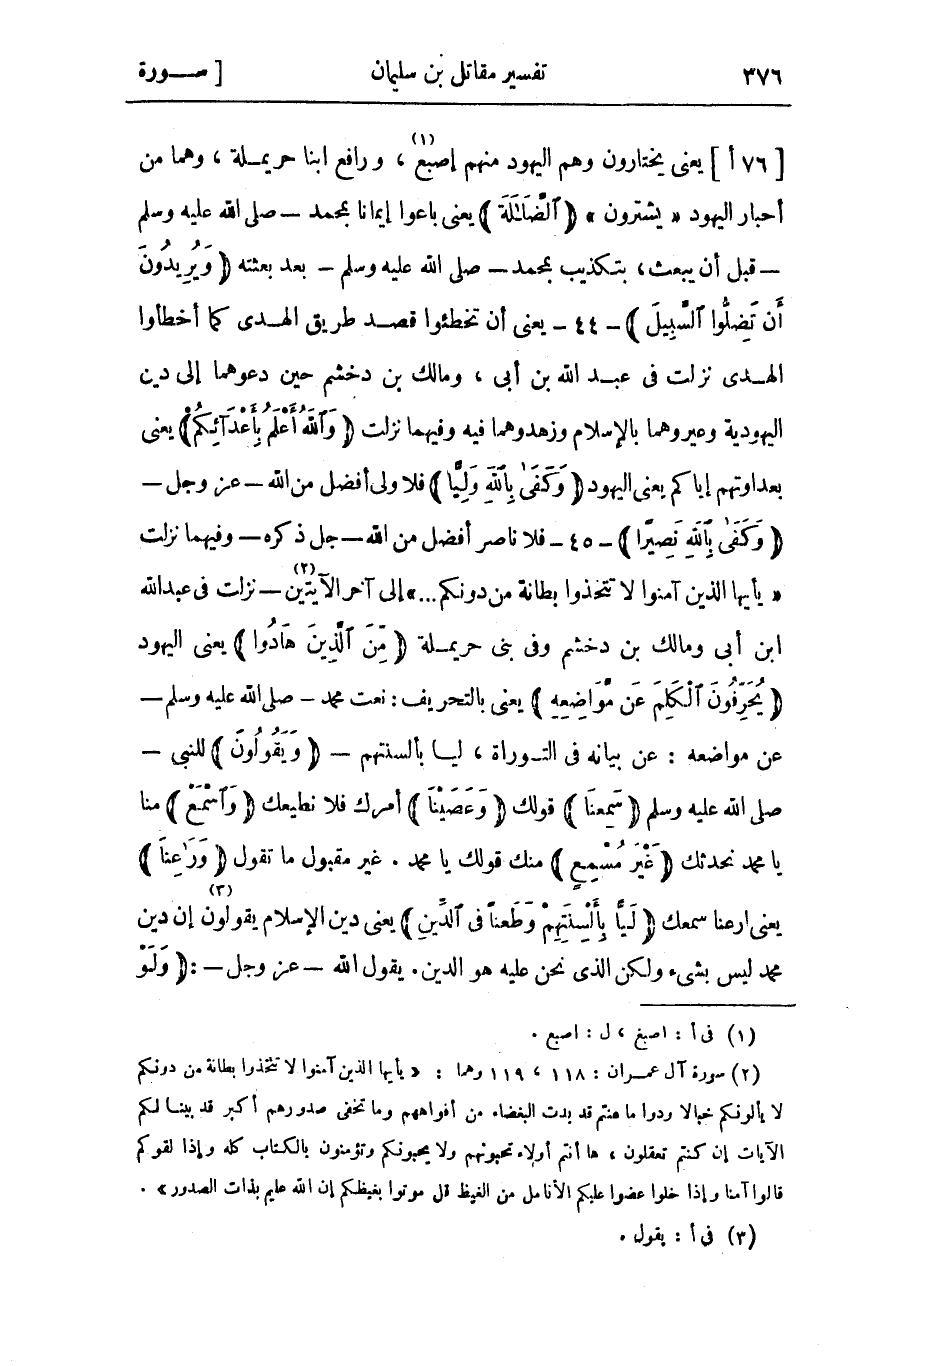 ٣٧٦ تفسير مقاتل بن سليمان [ سورة
[ ٧٦ أ ] يعنى يختارون وهم اليهود منهم إصبع (١) ، ورافع ابنا حريملة ، وهما من
أحبار اليهود « يشترون » ﴿ ٱلضَّلَـٰلَةَ ﴾ يعنى باعوا إيمانا بمحمد – صلى الله عليه وسلم
– قبل أن يبعث، بتكذيب بمحمد – صلى الله عليه وسلم – بعد بعثته ﴿ وَيُرِيدُونَ
أَن تَضِلُّوا ٱلسَّبِيلَ ﴾ – ٤٤ – يعنى أن تخطئوا قصد طريق الهدى كما أخطأوا
الهدى نزلت فى عبد الله بن أبى ، ومالك بن دخشم حين دعوهما إلى دين
اليهودية وعيروهما بالإسلام وزهدوهما فيه وفيهما نزلت ﴿ وَٱللَّهُ أَعْلَمُ بِأَعْدَآئِكُمْ ﴾ يعنى
بعداوتهم إياكم يعنى اليهود ﴿ وَكَفَىٰ بِٱللَّهِ وَلِيًّا ﴾ فلا ولى أفضل من الله – عز وجل –
﴿ وَكَفَىٰ بِٱللَّهِ نَصِيرًا ﴾ – ٤٥ – فلا ناصر أفضل من الله – جل ذكره – وفيهما نزلت
« يأيها الذين آمنوا لا تتخذوا بطانة من دونكم ... » إلى آخر الآيتين (٢) – نزلت فى عبدالله
ابن أبى ومالك بن دخشم وفى بنى حريملة ﴿ مِّنَ ٱلَّذِينَ هَادُوا ﴾ يعنى اليهود
﴿ يُحَرِّفُونَ ٱلْكَلِمَ عَن مَّوَاضِعِهِ ﴾ يعنى بالتحريف : نعت محمد – صلى الله عليه وسلم –
عن مواضعه : عن بيانه فى التوراة ، ليا بألسنتهم – ﴿ وَيَقُولُونَ ﴾ للنبى –
صلى الله عليه وسلم ﴿ سَمِعْنَا ﴾ قولك ﴿ وَعَصَيْنَا ﴾ أمرك فلا نطيعك ﴿ وَٱسْمَعْ ﴾ منا
يا محمد نحدثك ﴿ غَيْرَ مُسْمَعٍ ﴾ منك قولك يا محمد . غير مقبول ما تقول ﴿ وَرَٰعِنَا ﴾
يعنى ارعنا سمعك ﴿ لَيًّا بِأَلْسِنَتِهِمْ وَطَعْنًا فِى ٱلدِّينِ ﴾ يعنى دين الإسلام يقولون (٣) إن دين
محمد ليس بشىء ولكن الذى نحن عليه هو الدين. يقول الله – عز وجل – : ﴿ وَلَوْ
(١) فى أ : اصبغ ، ل : اصبع .
(٢) سورة آل عمران : ١١٨ ، ١١٩ وهما : « يأيها الذين آمنوا لا تتخذوا بطانة من دونكم
لا يألونكم خبالا ودوا ما عنتم قد بدت البغضاء من أفواههم وما تخفى صدورهم أكبر قد بينا لكم
الآيات إن كنتم تعقلون ، ها أنتم أولاء تحبونهم ولا يحبونكم وتؤمنون بالكتاب كله وإذا لقوكم
قالوا آمنا وإذا خلوا عضوا عليكم الأنامل من الغيظ قل موتوا بغيظكم إن الله عليم بذات الصدور » .
(٣) فى أ : يقول .